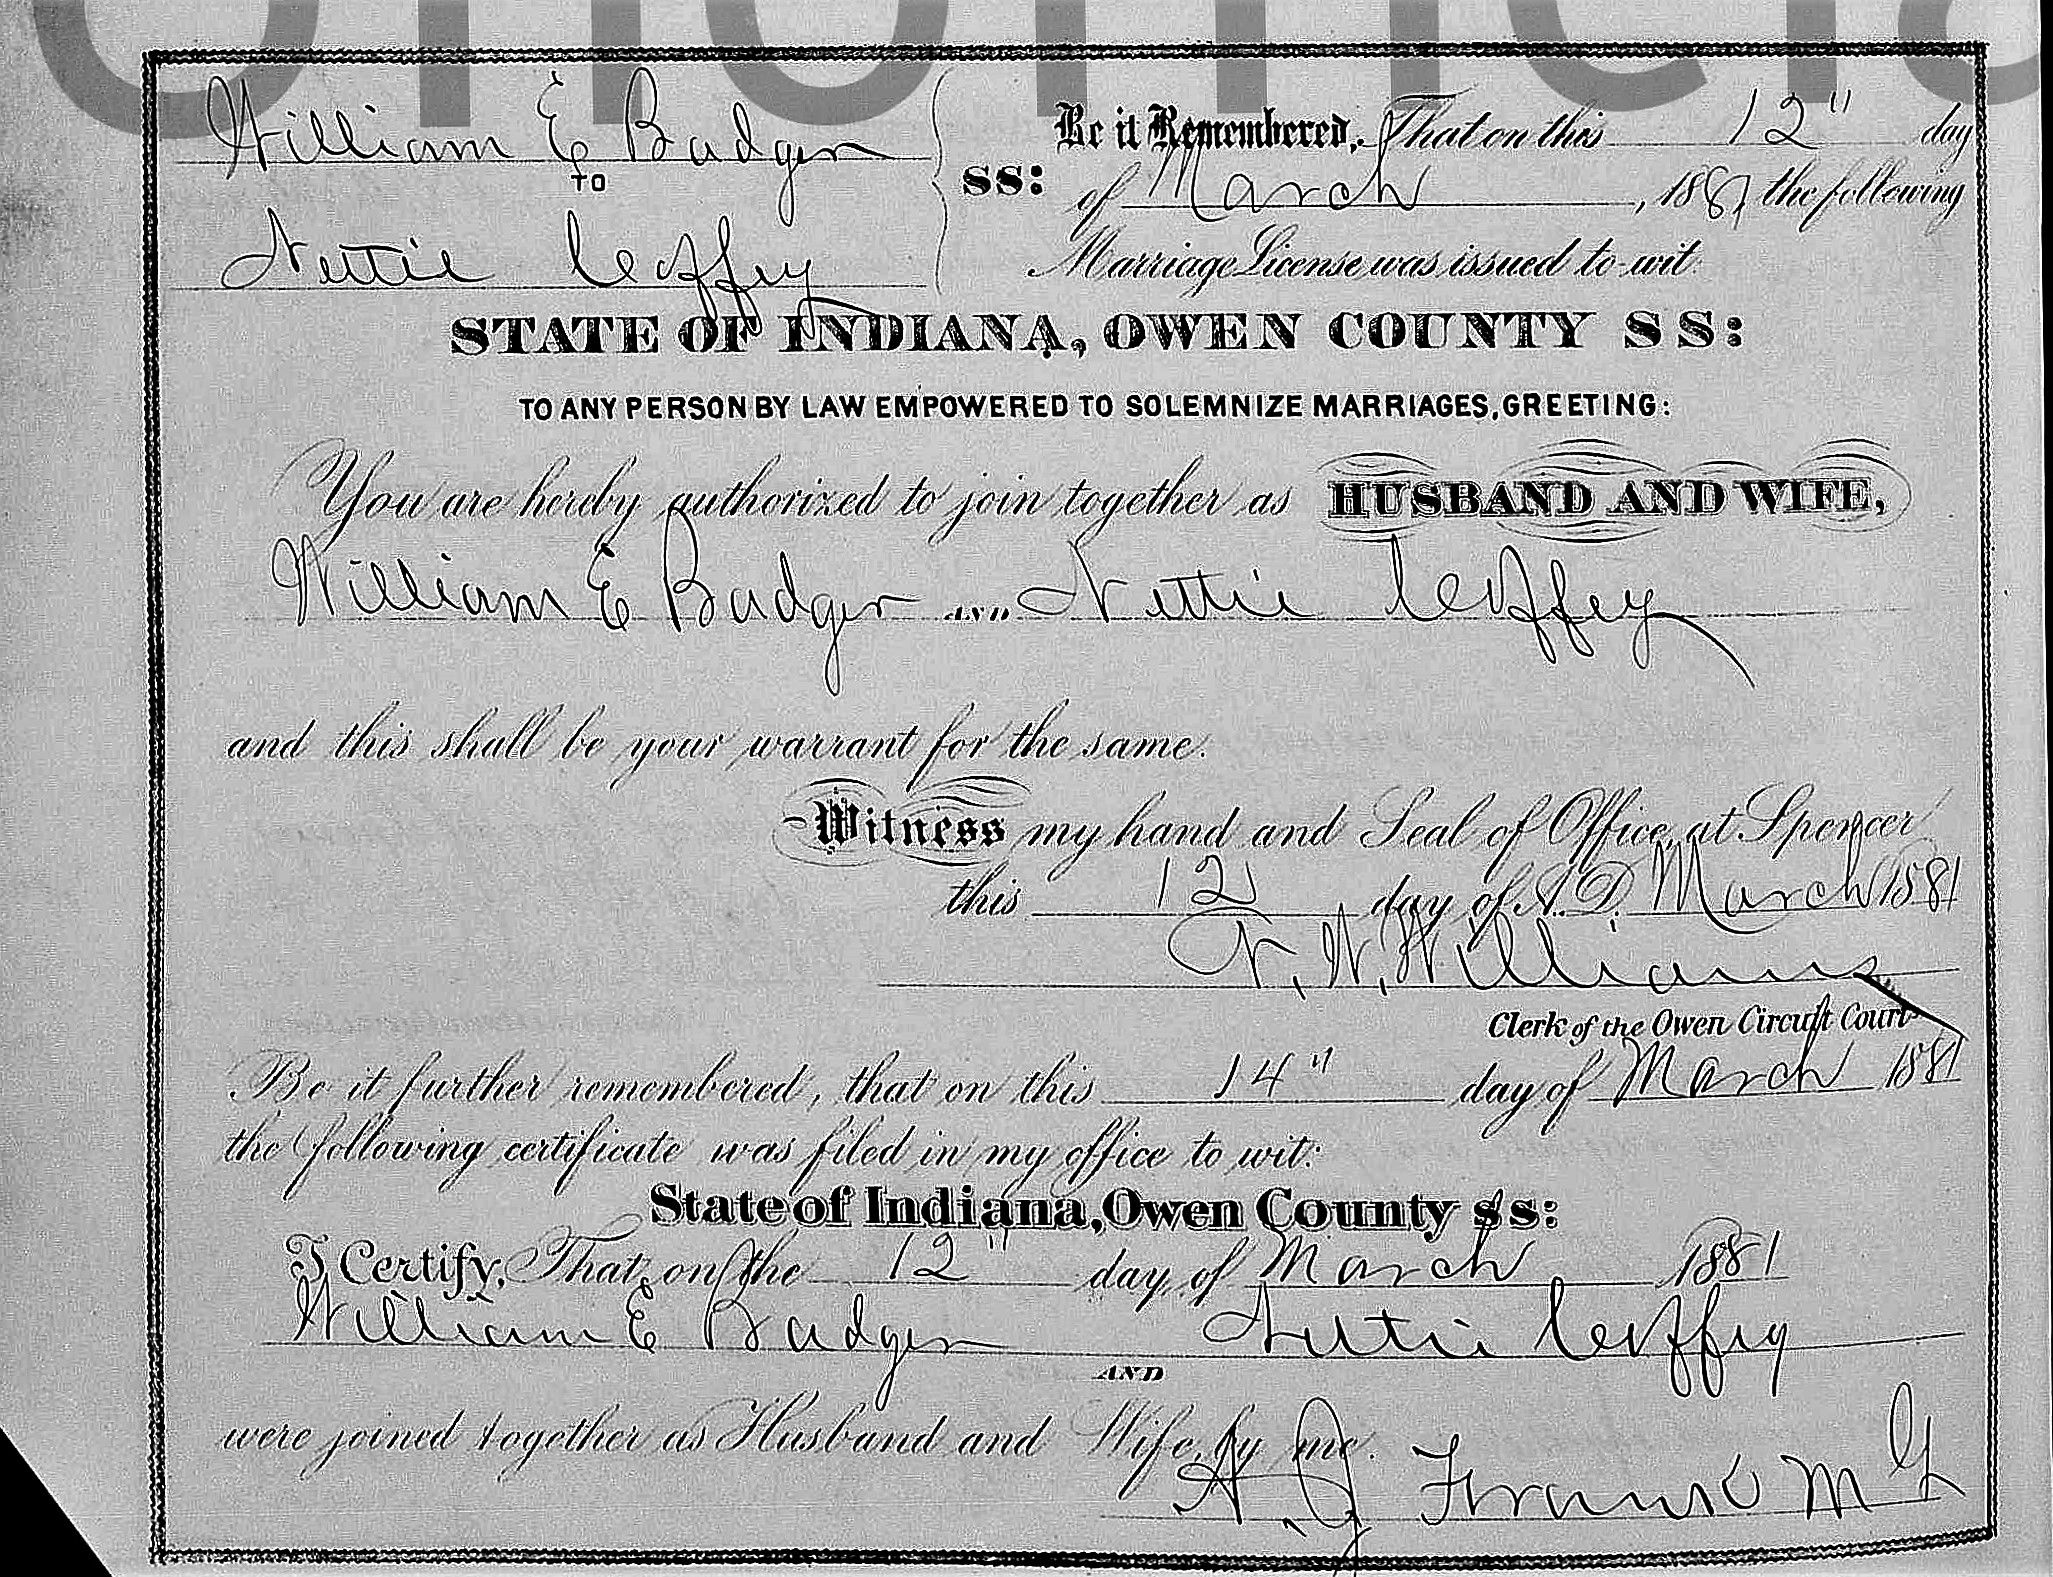 William E Badger
TO
Nettie Coffey
SS:
Be it Remembered, That on this 12" day
of March, 1881 the following
Marriage License was issued to wit:
STATE OF INDIANA, OWEN COUNTY SS:
TO ANY PERSON BY LAW EMPOWERED TO SOLEMNIZE MARRIAGES, GREETING:
You are hereby authorized to join together as HUSBAND AND WIFE,
William E Badger AND Nettie Coffey
and this shall be your warrant for the same.
Witness my hand and Seal of Office, at Spencer
this 12 day of A. D. March 1881
N. W. Williams
Clerk of the Owen Circuit Court
Be it further remembered, that on this 14" day of March 1881
the following certificate was filed in my office to wit:
State of Indiana, Owen County ss:
I Certify, That on the 12" day of March 1881
William E Badger Nettie Coffey
AND
were joined together as Husband and Wife, by me.
A J